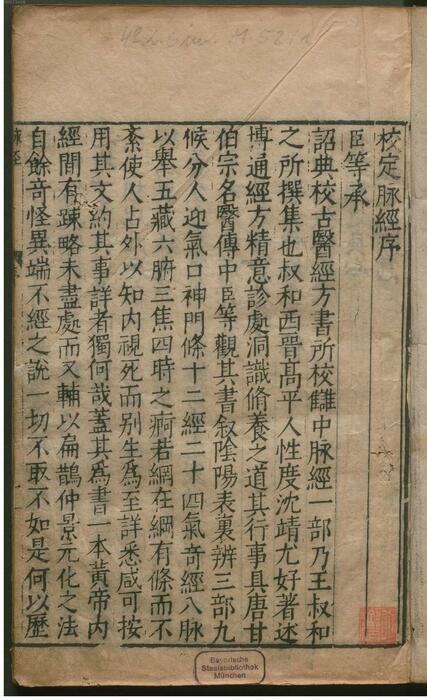 校定脉經序
臣等承
詔典校古醫經方書所校讎中脉經一部乃王叔和
之所撰集也叔和西晋髙平人性度沈靖尤好著述
博通經方精意診處洞識脩養之道其行事具唐甘
伯宗名醫傳中臣等觀其書叙陰陽表裏辨三部九
候分人迎氣口神門條十二經二十四氣奇經八脉
以舉五藏六腑三焦四時之痾若網在綱有條而不
紊使人占外以知内視死而别生為至詳悉咸可按
用其文約其事詳者獨何哉蓋其為書一本黄帝内
經間有踈略未盡處而又輔以扁鵲仲景元化之法
自餘奇怪異端不經之説一切不取不如是何以歷
Bayerische
Staatsbibliothek
München